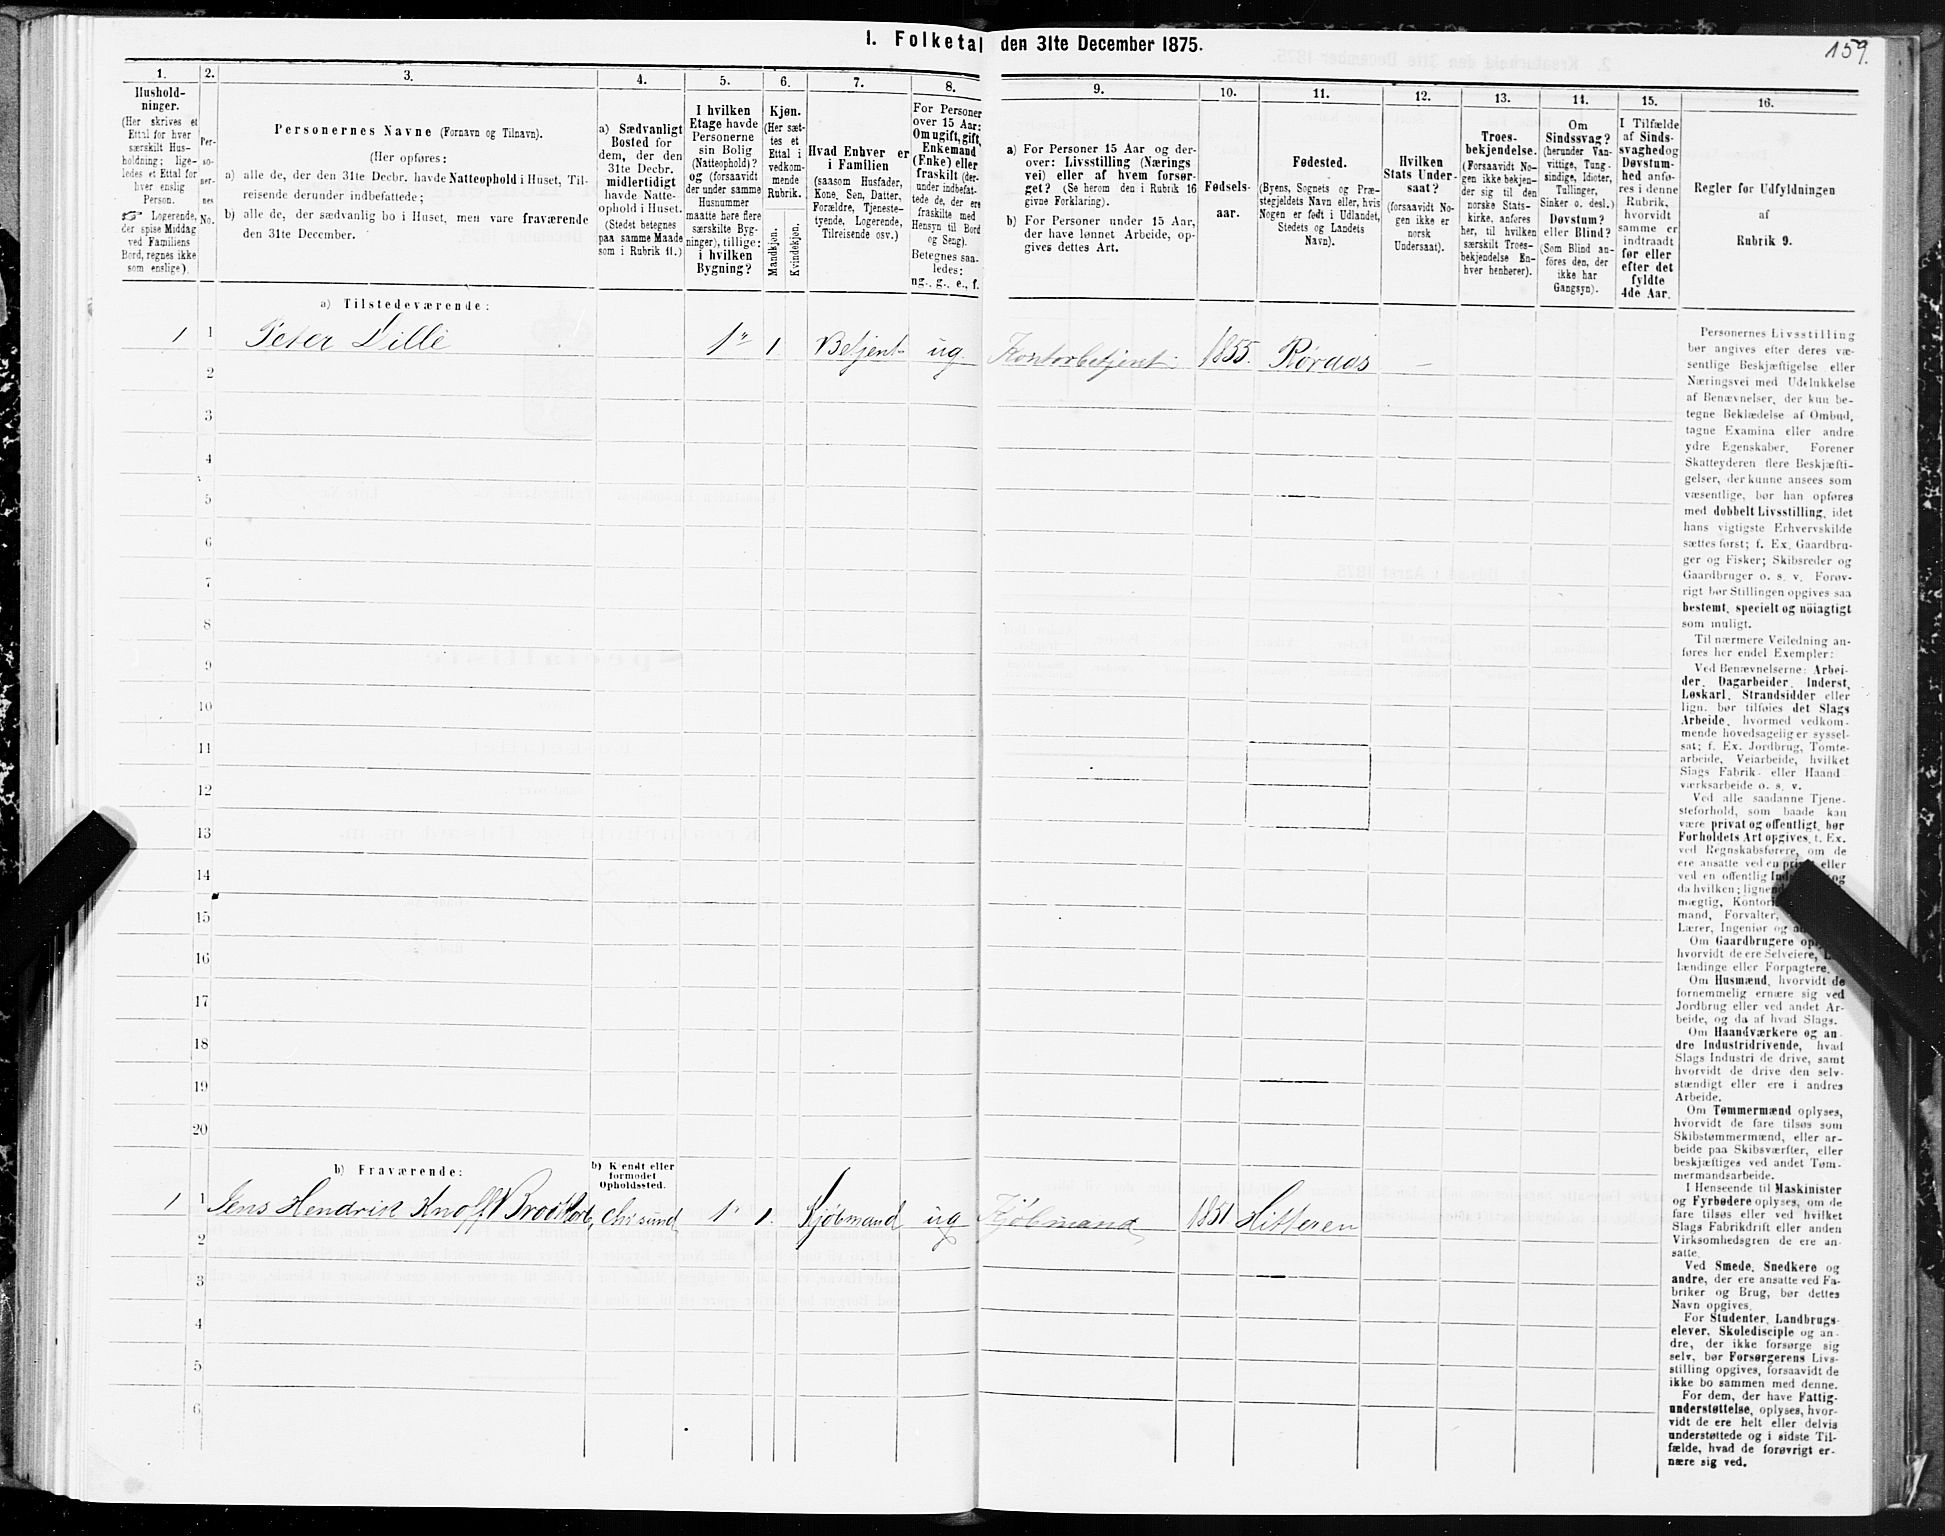 1. Folketal den 31te December 1875.
159.
1.
2.
3.
4.
5.
6.
7.
8.
9.
10.
11.
12.
13.
14.
15.
16.
Hushold-
ninger.
(Her skrives et
Ettal for hver
særskilt Hus-
holdning; lige-
ledes et Ettal for
hver enslig
Person.
☞ Logerende,
der spise Middag
ved Familiens
Bord, regnes ikke
som enslige).
Per-
so-
ner-
nes
No.
Personernes Navne (Fornavn og Tilnavn).
(Her opføres:
a) alle de, der den 31te Decbr. havde Natteophold i Huset, Til-
reisende derunder indbefattede;
b) alle de, der sædvanlig bo i Huset, men vare fraværende
den 31te December.
a) Sædvanligt
Bosted for
dem, der den
31te Decbr.
midlertidigt
havde Natte-
ophold i Huset.
(Stedet betegnes
paa samme Maade
som i Rubrik 11.)
I hvilken
Etage havde
Personerne
sin Bolig
(Natteophold)?
og (forsaavidt
der under samme
Husnummer
maatte høre flere
særskilte Byg-
ninger), tillige:
i hvilken
Bygning?
Kjøn.
(Her sæt-
tes et
Ettal i
vedkom-
mende
Rubrik.)
Mandkjøn.
Kvindekjøn.
Hvad Enhver er
i Familien
(saasom Husfader,
Kone, Søn, Datter,
Forældre, Tjeneste-
tyende, Logerende,
Tilreisende osv.)
For Personer
over 15 Aar:
Om ugift, gift,
Enkemand
(Enke) eller
fraskilt (der-
under indbefat-
tede de, der ere
fraskilte med
Hensyn til Bord
og Seng).
Betegnes saa-
ledes:
ug., g., e., f.
a) For Personer 15 Aar og der-
over: Livsstilling (Nærings
vei) eller af hvem forsør-
get? (Se herom den i Rubrik 16
givne Forklaring).
b) For Personer under 15 Aar,
der have lønnet Arbeide, op-
gives dettes Art.
Fødsels-
aar.
Fødested.
(Byens, Sognets og Præ-
stegjeldets Navn eller, hvis
Nogen er født i Udlandet,
Stedets og Landets
Navn).
Hvilken
Stats Under-
saat?
(forsaavidt No-
gen ikke er
norsk
Undersaat).
Troes-
bekjendelse.
(Forsaavidt No-
gen ikke bekjen-
der sig til den
norske Stats-
kirke, anføres
her, til hvilken
særskilt Troes-
bekjendelse En-
hver henhører).
Om
Sindssvag?
(herunder Van-
vittige, Tung-
sindige, Idioter,
Tullinger,
Sinker o. desl.)
Døvstum?
eller Blind?
(Som Blind an-
føres den, der
ikke har
Gangsyn).
I Tilfælde
af Sinds-
svaghed og
Døvstum-
hed anfø-
res i denne
Rubrik,
hvorvidt
samme er
indtraadt
før eller
efter det
fyldte
4de Aar.
Regler for Udfyldningen
af
Rubrik 9.
a) Tilstedeværende:
1 1 Peter Dille 1" 1 Betjent ug Kontorbetjent 1855. Røraas –
2
3
4
5
6
7
8
9
10
11
12
13
14
15
16
17
18
19
20
b) Fraværende:
b) Kjendt eller
formodet
Opholdssted.
1 1 Jens Hendrik Knoff Chr sund 1" 1. Kjøbmand ug Kjøbmand 1851 Hitteren
2
3
4
5
6
Personernes Livsstilling
bør angives efter deres væ-
sentlige Beskjæftigelse eller
Næringsvei med Udelukkelse
af Benævnelser, der kun be-
tegne Beklædelse af Ombud,
tagne Examina eller andre
ydre Egenskaber. Forener
Skatteyderen flere Beskjæfti-
gelser, der kunne ansees som
væsentlige, bør han opføres
med dobbelt Livsstilling, idet
hans vigtigste Erhvervskilde
sættes først; f. Ex. Gaardbru-
ger og Fisker; Skibsreder og
Gaardbruger o. s. v. Forøv-
rigt bør Stillingen opgives saa
bestemt, specielt og nöiagtigt
som muligt.
Til nærmere Veiledning an-
føres her endel Exempler:
Ved Benævnelserne: Arbei-
der, Dagarbeider, Inderst,
Løskarl, Strandsidder eller
lign. bør tilføies det Slags
Arbeide, hvormed vedkom-
mende hovedsagelig er syssel-
sat; f. Ex. Jordbrug, Tomte-
arbeide, Veiarbeide, hvilket
Slags Fabrik- eller Haand-
værksarbeide o. s. v.
Ved alle saadanne Tjene-
steforhold, som baade kan
være privat og offentligt, bør
Forholdets Art opgives, f. Ex.
ved Regnskabsførere, om de
ere ansatte ved en privat eller
ved en offentlig og
da hvilken;
mægtig,
mand, Forvalter,
Lærer, Ingeniør og
Om Gaardbrugere
hvorvidt de ere Selveiere,
lændinge eller Forpagtere.
Om Husmænd, hvorvidt de
fornemmelig ernære sig ved
Jordbrug eller ved andet Ar-
beide, og da af hvad Slags.
Om Haandværkere og an-
dre Industridrivende, hvad
Slags Industri de drive, samt
hvorvidt de drive den selv-
stændigt eller ere i andres
Arbeide.
Om Tømmermænd oplyses,
hvorvidt de fare tilsøs som
Skibstømmermænd, eller ar-
beide paa Skibsværfter, eller
beskjæftiges ved andet Tøm-
mermandsarbeide.
I Henseende til Maskinister
og Fyrbødere oplyses, om de
fare tilsøs eller ved hvilket
Slags Fabrikdrift eller anden
Virksomhedsgren de ere an-
satte.
Ved Smede, Snedkere og
andre, der ere ansatte ved Fa-
briker og Brug, bør dettes
Navn opgives.
For Studenter, Landbrugs-
elever, Skoledisciple og an-
dre, der ikke forsørge sig
selv, bør Forsørgerens Livs-
stilling opgives, forsaavidt de
ikke bo sammen med denne.
For dem, der have Fattig-
understøttelse, oplyses, hvor-
vidt de ere helt eller delvis
understøttede og i sidste Til-
fælde, hvad de forøvrigt er-
nære sig ved.